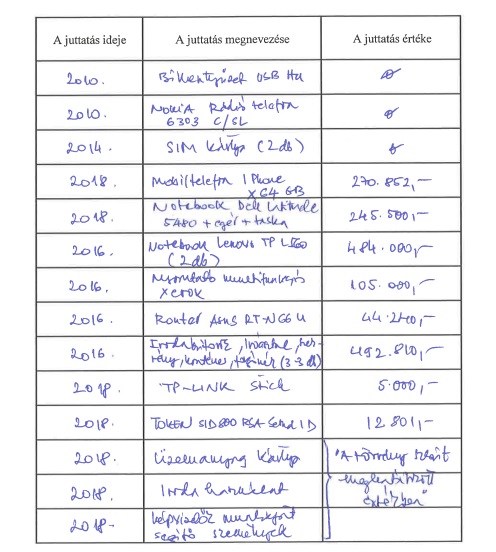 A juttatás ideje A juttatás megnevezése A juttatás értéke
2010. Billentyűzet USB Hu ø
2010. NOKIA Rádiótelefon
6303 C/SL ø
2014. SIM kártya (2db) ø
2018. Mobiltelefon iPhone
X 64 GB 270.852,-
2018. Notebook Dell Latitude
5480 + egér + táska 245.500,-
2016. Notebook Lenovo TP L560
(2db) 484.000,-
2016. Nyomtató multifunkciós
XEROX 105.000,-
2016. Router ASUS RT-NG6U 44.240,-
2016. Irodabútor, íróasztal, szek-
rény, konténer, (3-3 db) 492.810,-
2018. TP-LINK Stick 5.000,-
2018. TOKEN SID800 RSA SecurID 12.801,-
2018. Üzemanyag kártya "A törvény szerint
2018. Iroda használat meghatározott
értékben"
2018- képviselői munkáját
segítő személyek